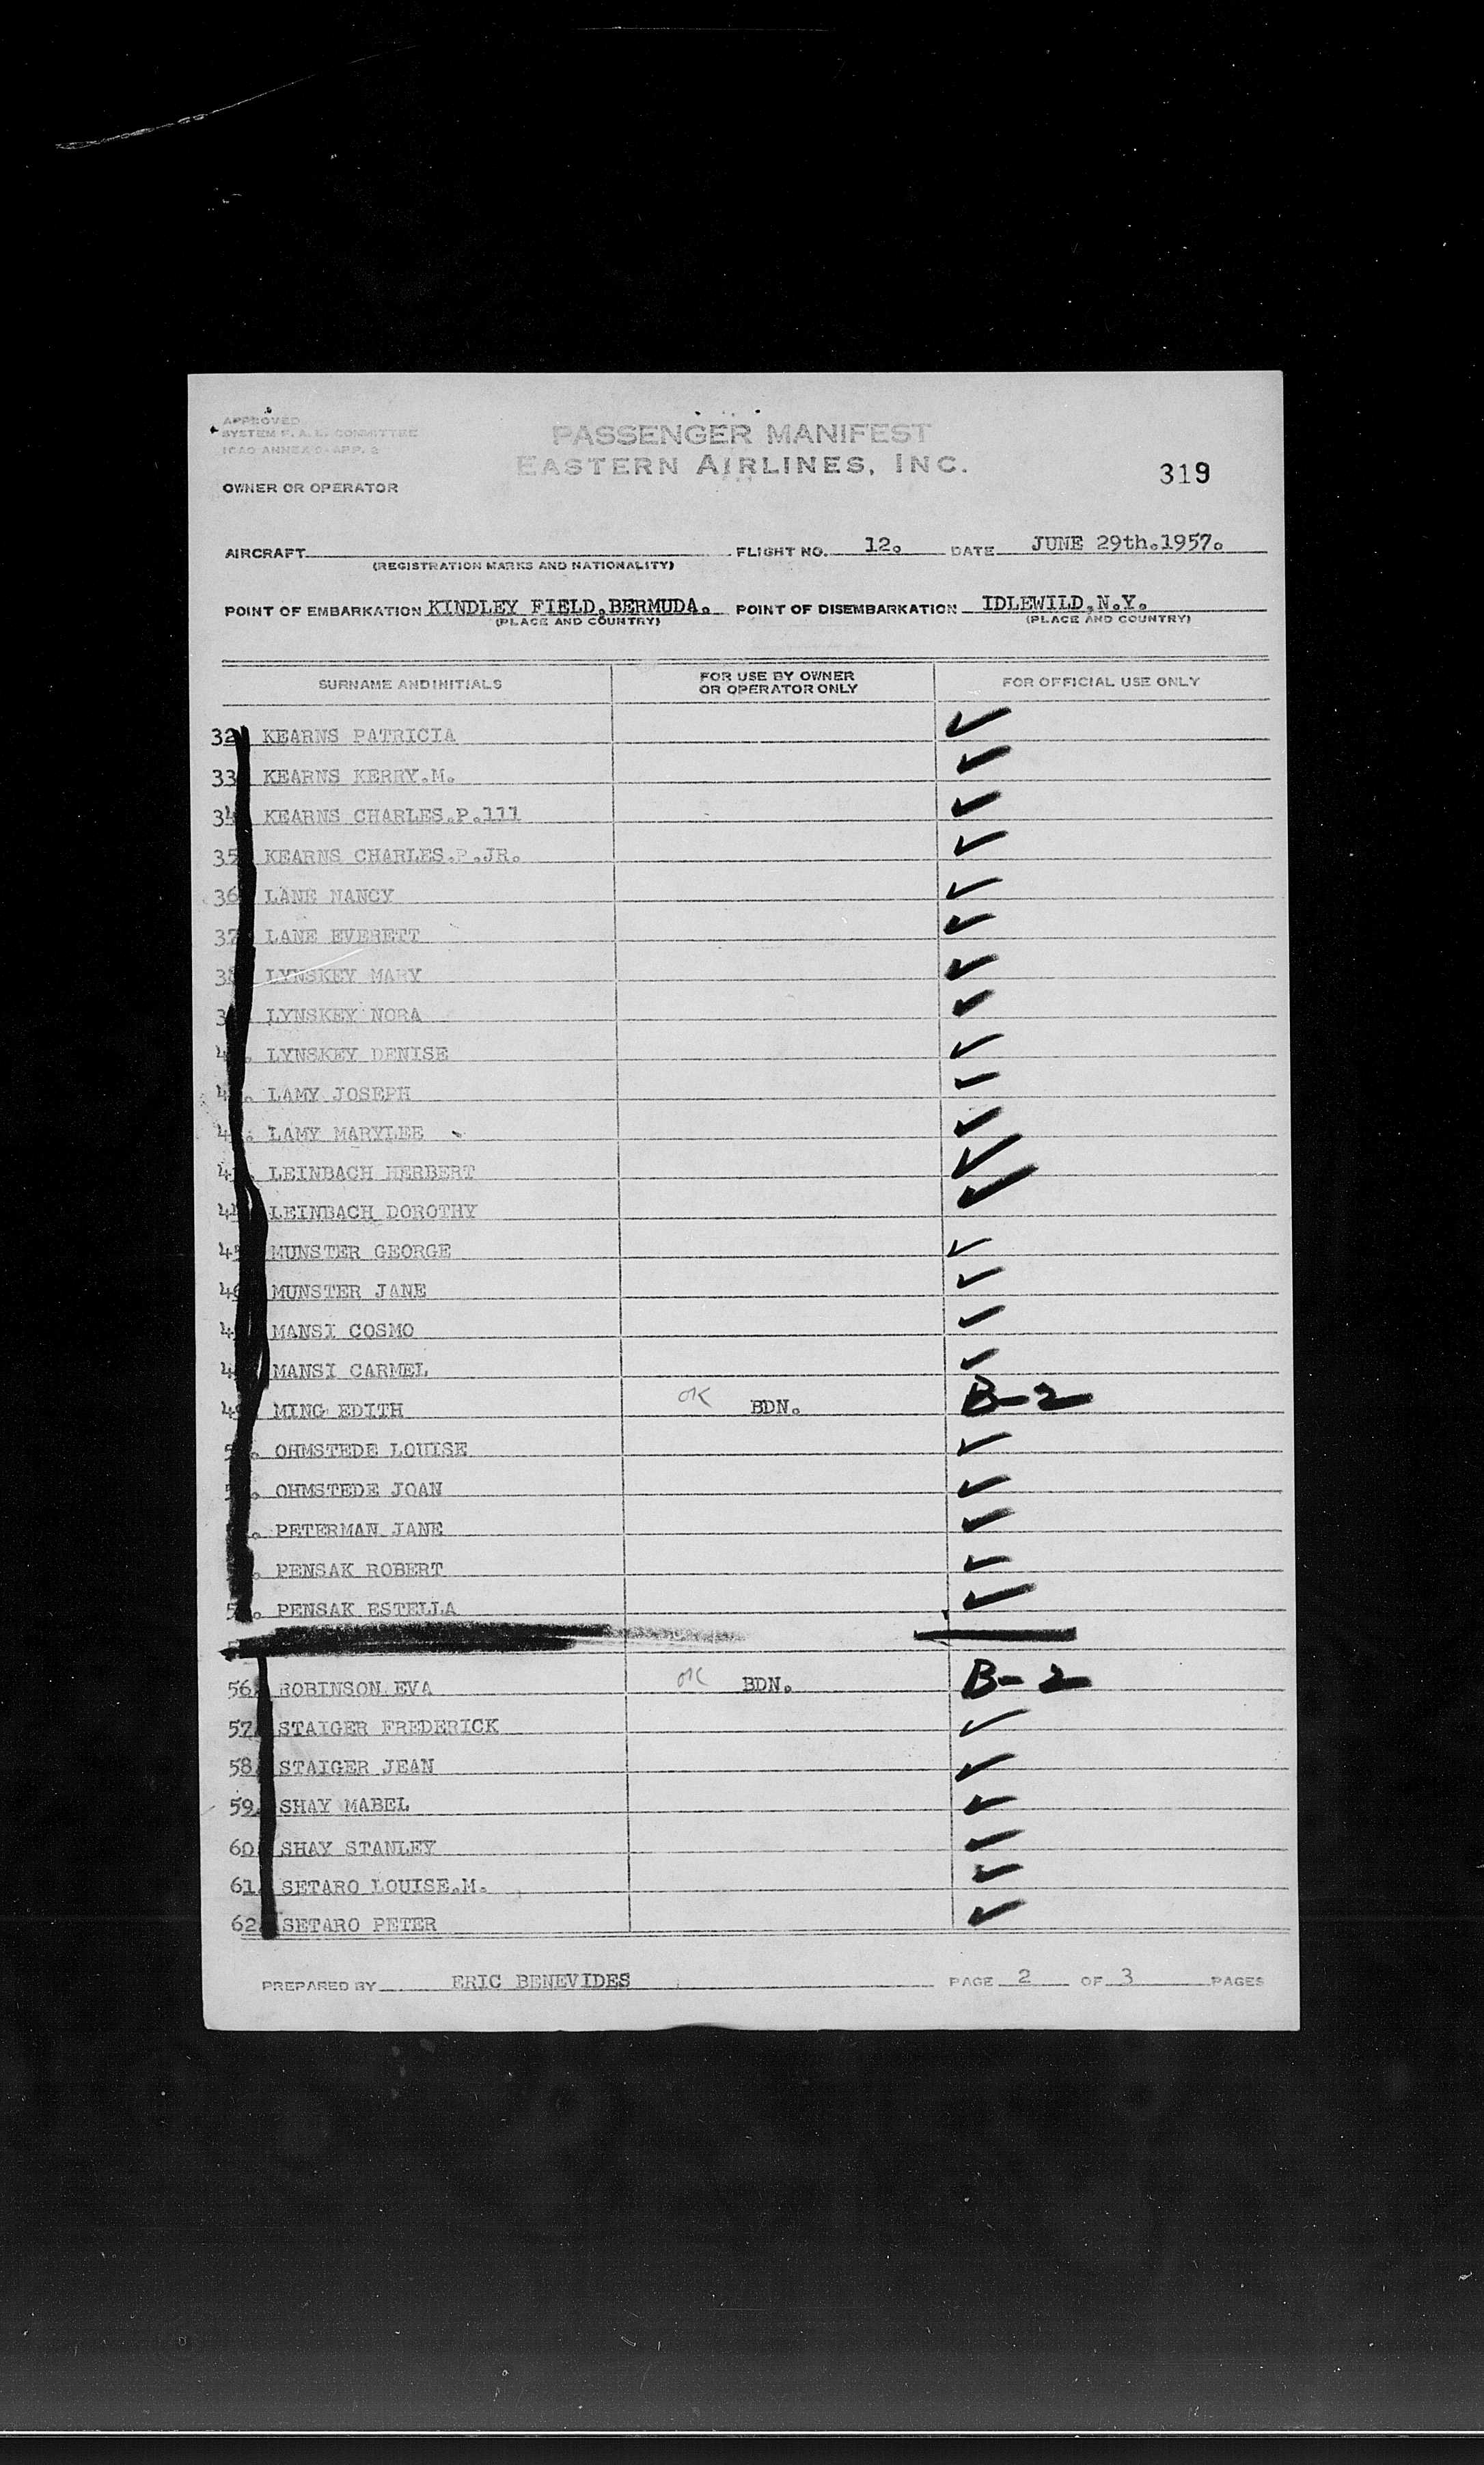 APPROVED
SYSTEM F. A. L. COMMITTEE
ICAO ANNEX 9-APP. 3
PASSENGER MANIFEST
EASTERN AIRLINES, INC.
319
OWNER OR OPERATOR
AIRCRAFT FLIGHT NO. 12. DATE JUNE 29th.1957.
(REGISTRATION MARKS AND NATIONALITY)
POINT OF EMBARKATION KINDLEY FIELD,BERMUDA. POINT OF DISEMBARKATION IDLEWILD,N.Y.
(PLACE AND COUNTRY) (PLACE AND COUNTRY)
SURNAME AND INITIALS FOR USE BY OWNER OR OPERATOR ONLY FOR OFFICIAL USE ONLY
32 KEARNS PATRICIA ✓
33 KEARNS KERRY.M. ✓
34 KEARNS CHARLES.P.111 ✓
35 KEARNS CHARLES.P.JR. ✓
36 LANE NANCY ✓
37 LANE EVERETT ✓
38 LYNSKEY MARY ✓
3 LYNSKEY NORA ✓
4 . LYNSKEY DENISE ✓
4 . LAMY JOSEPH ✓
4 . LAMY MARYLEE ✓
4 . LEINBACH HERBERT ✓
44 LEINBACH DOROTHY ✓
45 MUNSTER GEORGE ✓
46 MUNSTER JANE ✓
4 MANSI COSMO ✓
4 MANSI CARMEL ✓
49. MING EDITH OK BDN. B-2
5 . OHMSTEDE LOUISE ✓
5 . OHMSTEDE JOAN ✓
. PETERMAN JANE ✓
. PENSAK ROBERT ✓
5 . PENSAK ESTELLA ✓
56. ROBINSON EVA OK BDN. B-2
57. STAIGER FREDERICK ✓
58. STAIGER JEAN ✓
59. SHAY MABEL ✓
60. SHAY STANLEY ✓
61. SETARO LOUISE.M. ✓
62. SETARO PETER ✓
PREPARED BY ERIC BENEVIDES PAGE 2 OF 3 PAGES